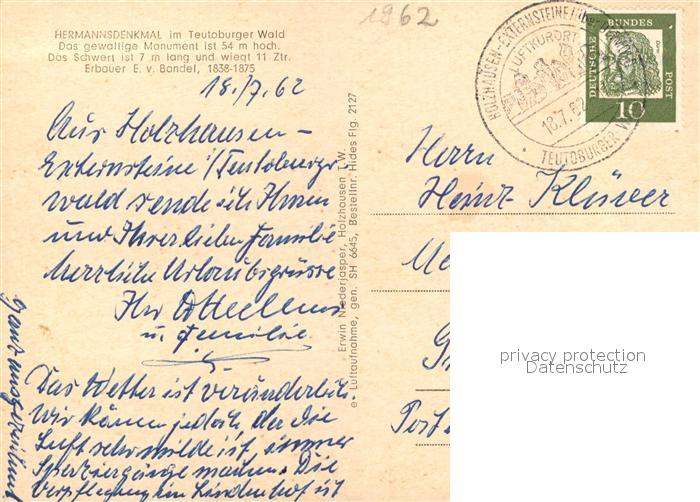 1962
HERMANNSDENKMAL im Teutoburger Wald
Das gewaltige Monument ist 54 m hoch.
Das Schwert ist 7 m lang und wiegt 11 Ztr.
Erbauer E. v. Bandel, 1838-1875
18./7. 62
Aus Holzhausen-
Externsteine / Teutoburger
wald sende ich Ihnen
und Ihrer lieben Familie
herzliche Urlaubsgrüsse
Ihr
u. Familie.
Das Wetter ist veränderlich.
Wir können jedoch, da die
Luft sehr milde ist, immer
Spaziergänge machen. Die
Verpflegung im Lindenhof ist
ganz ausgezeichnet
Erwin Niederjasper, Holzhausen T.W.
Luftaufnahme, gen. SH 6645, Bestellnr. Hides Flg. 2127
HOLZHAUSEN-EXTERNSTEINE / über
LUFTKURORT
18.7.62
TEUTOBURGER
DEUTSCHE BUNDES POST
10
Herrn
Heinz Klüver
privacy protection
Datenschutz